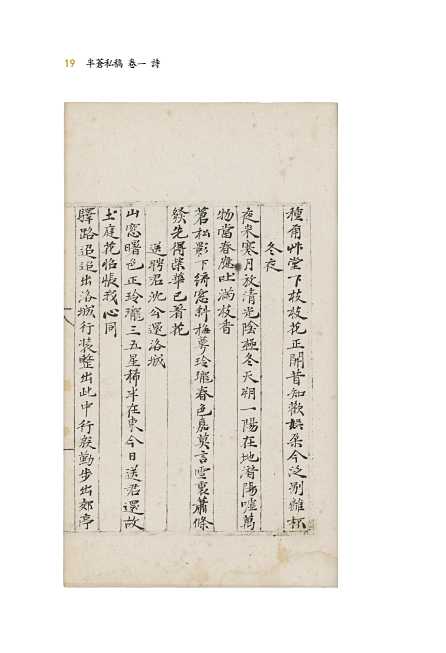 19 半蒼私稿 卷一 詩
種爾艸堂下枝枝花正開昔知歡娛柔今泛別離杯
冬夜
夜来寒月放清光陰極冬天朔一陽在地潛陽噓萬
物當春應吐滿枝香
蒼松影下綺窓斜梅夢玲瓏春色嘉莫言雪裏蕭條
後先得榮華已著花
送聘君沈公還洛城
山窓曙色正玲瓏三五星稀半在東今日送君還故
土庭花怊悵我心同
驛路迢迢出洛城行装整出此中行殷勤步出郊亭